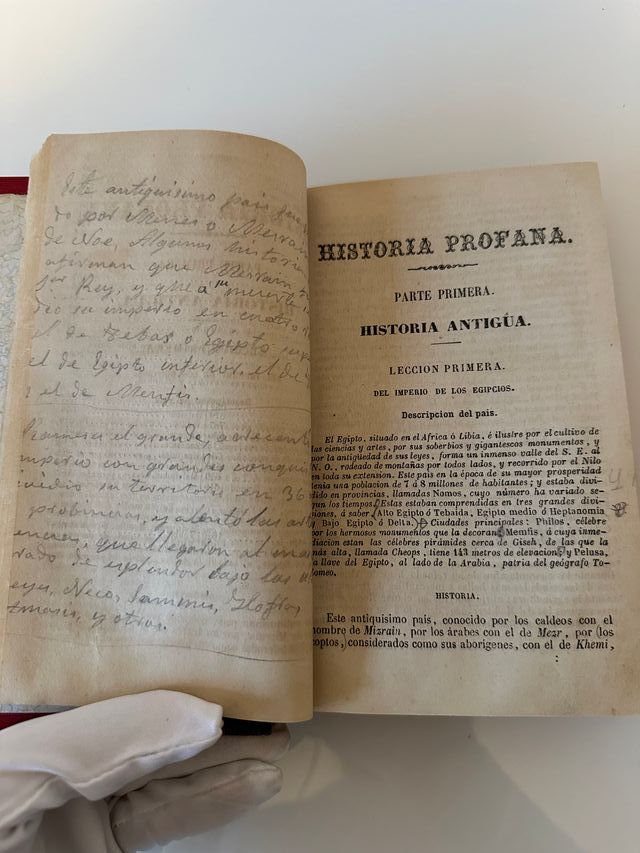 Este antiquisimo pais fue
do por Menes o Mesrain
de Noe, Algunos historia
afirman que Mesrain
Rey, y que a su muerte
dio su imperio en cuatro
el de Tebas o Egipto
el de Egipto inferior, el de
y el de Menfis.
el grande, acrecent
imperio con grandes conqui
su territorio en 36
y alento las ar
que llegaron al
rado de esplendor bajo los
Neco,
y otros.
HISTORIA PROFANA.
PARTE PRIMERA.
HISTORIA ANTIGÚA.
LECCION PRIMERA.
DEL IMPERIO DE LOS EGIPCIOS.
Descripcion del pais.
El Egipto, situado en el Africa ó Libia, é ilustre por el cultivo de
las ciencias y artes, por sus soberbios y gigantescos monumentos, y
por la antigüedad de sus leyes, forma un inmenso valle del S. E. al
N. O., rodeado de montañas por todos lados, y recorrido por el Nilo
en toda su extension. Este pais en la época de su mayor prosperidad
tenia una poblacion de 7 á 8 millones de habitantes; y estaba divi-
dido en provincias, llamadas Nomos, cuyo número ha variado se-
gun los tiempos. Estas estaban comprendidas en tres grandes divi-
siones, á saber, Alto Egipto ó Tebaida, Egipto medio ó Heptanomia
y Bajo Egipto ó Delta. Ciudades principales: Philos, célebre
por los hermosos monumentos que la decoran, Memfis, á cuya inme-
diacion estan las célebres pirámides cerca de Giseh, de las que la
más alta, llamada Cheops, tiene 142 metros de elevacion, y Pelusa,
la llave del Egipto, al lado de la Arabia, patria del geógrafo To-
lomeo.
HISTORIA.
Este antiquisimo país, conocido por los caldeos con el
nombre de Mizrain, por los árabes con el de Mezr, por los
coptos, considerados como sus aborigenes, con el de Khemi,